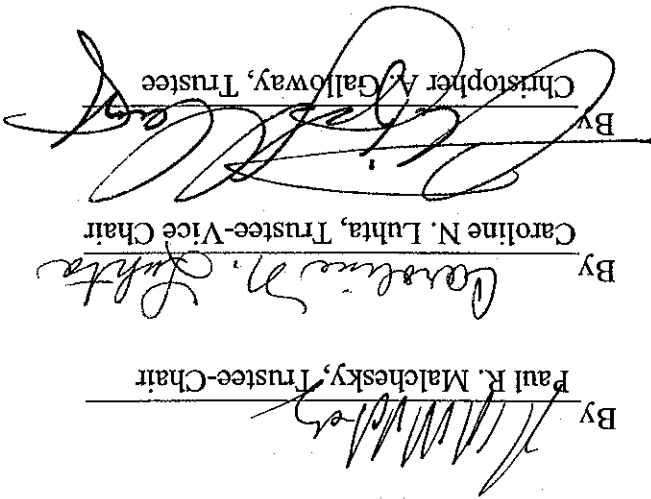 By
Paul R. Malchesky, Trustee-Chair
By Caroline N. Luhta
Caroline N. Luhta, Trustee-Vice Chair
By
Christopher A. Galloway, Trustee